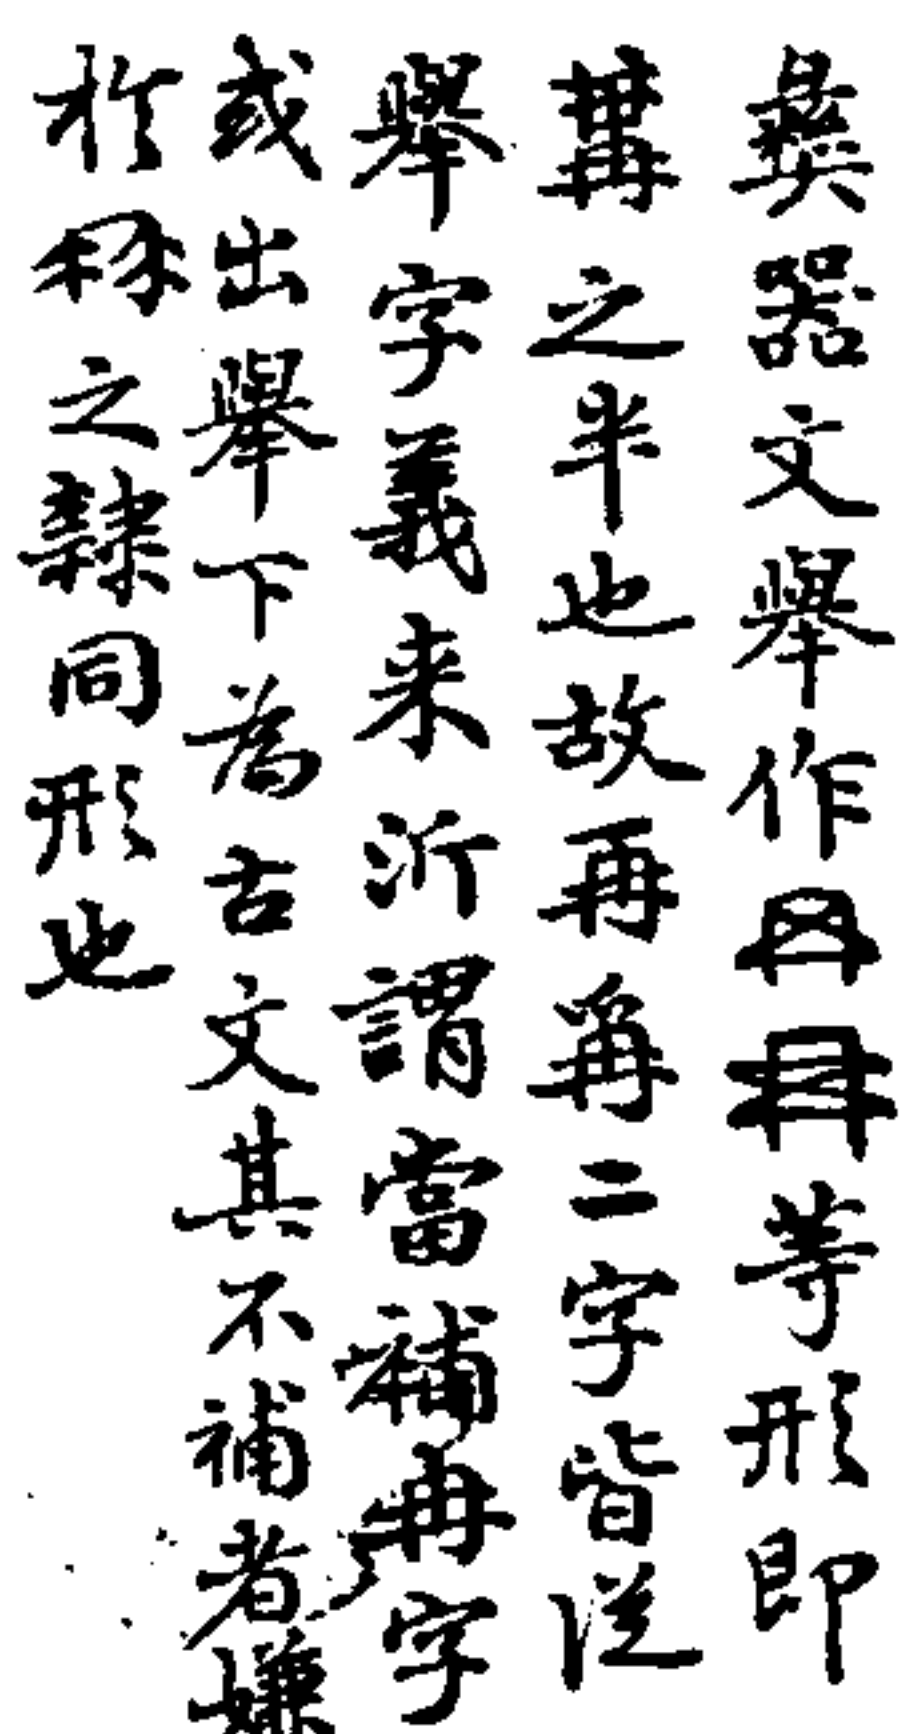 彝器文舉作等形即
冓之半也故再爯二字皆從
舉字義来沂謂當補冉字
或出舉下為古文其不補者嫌
於之隸同形也